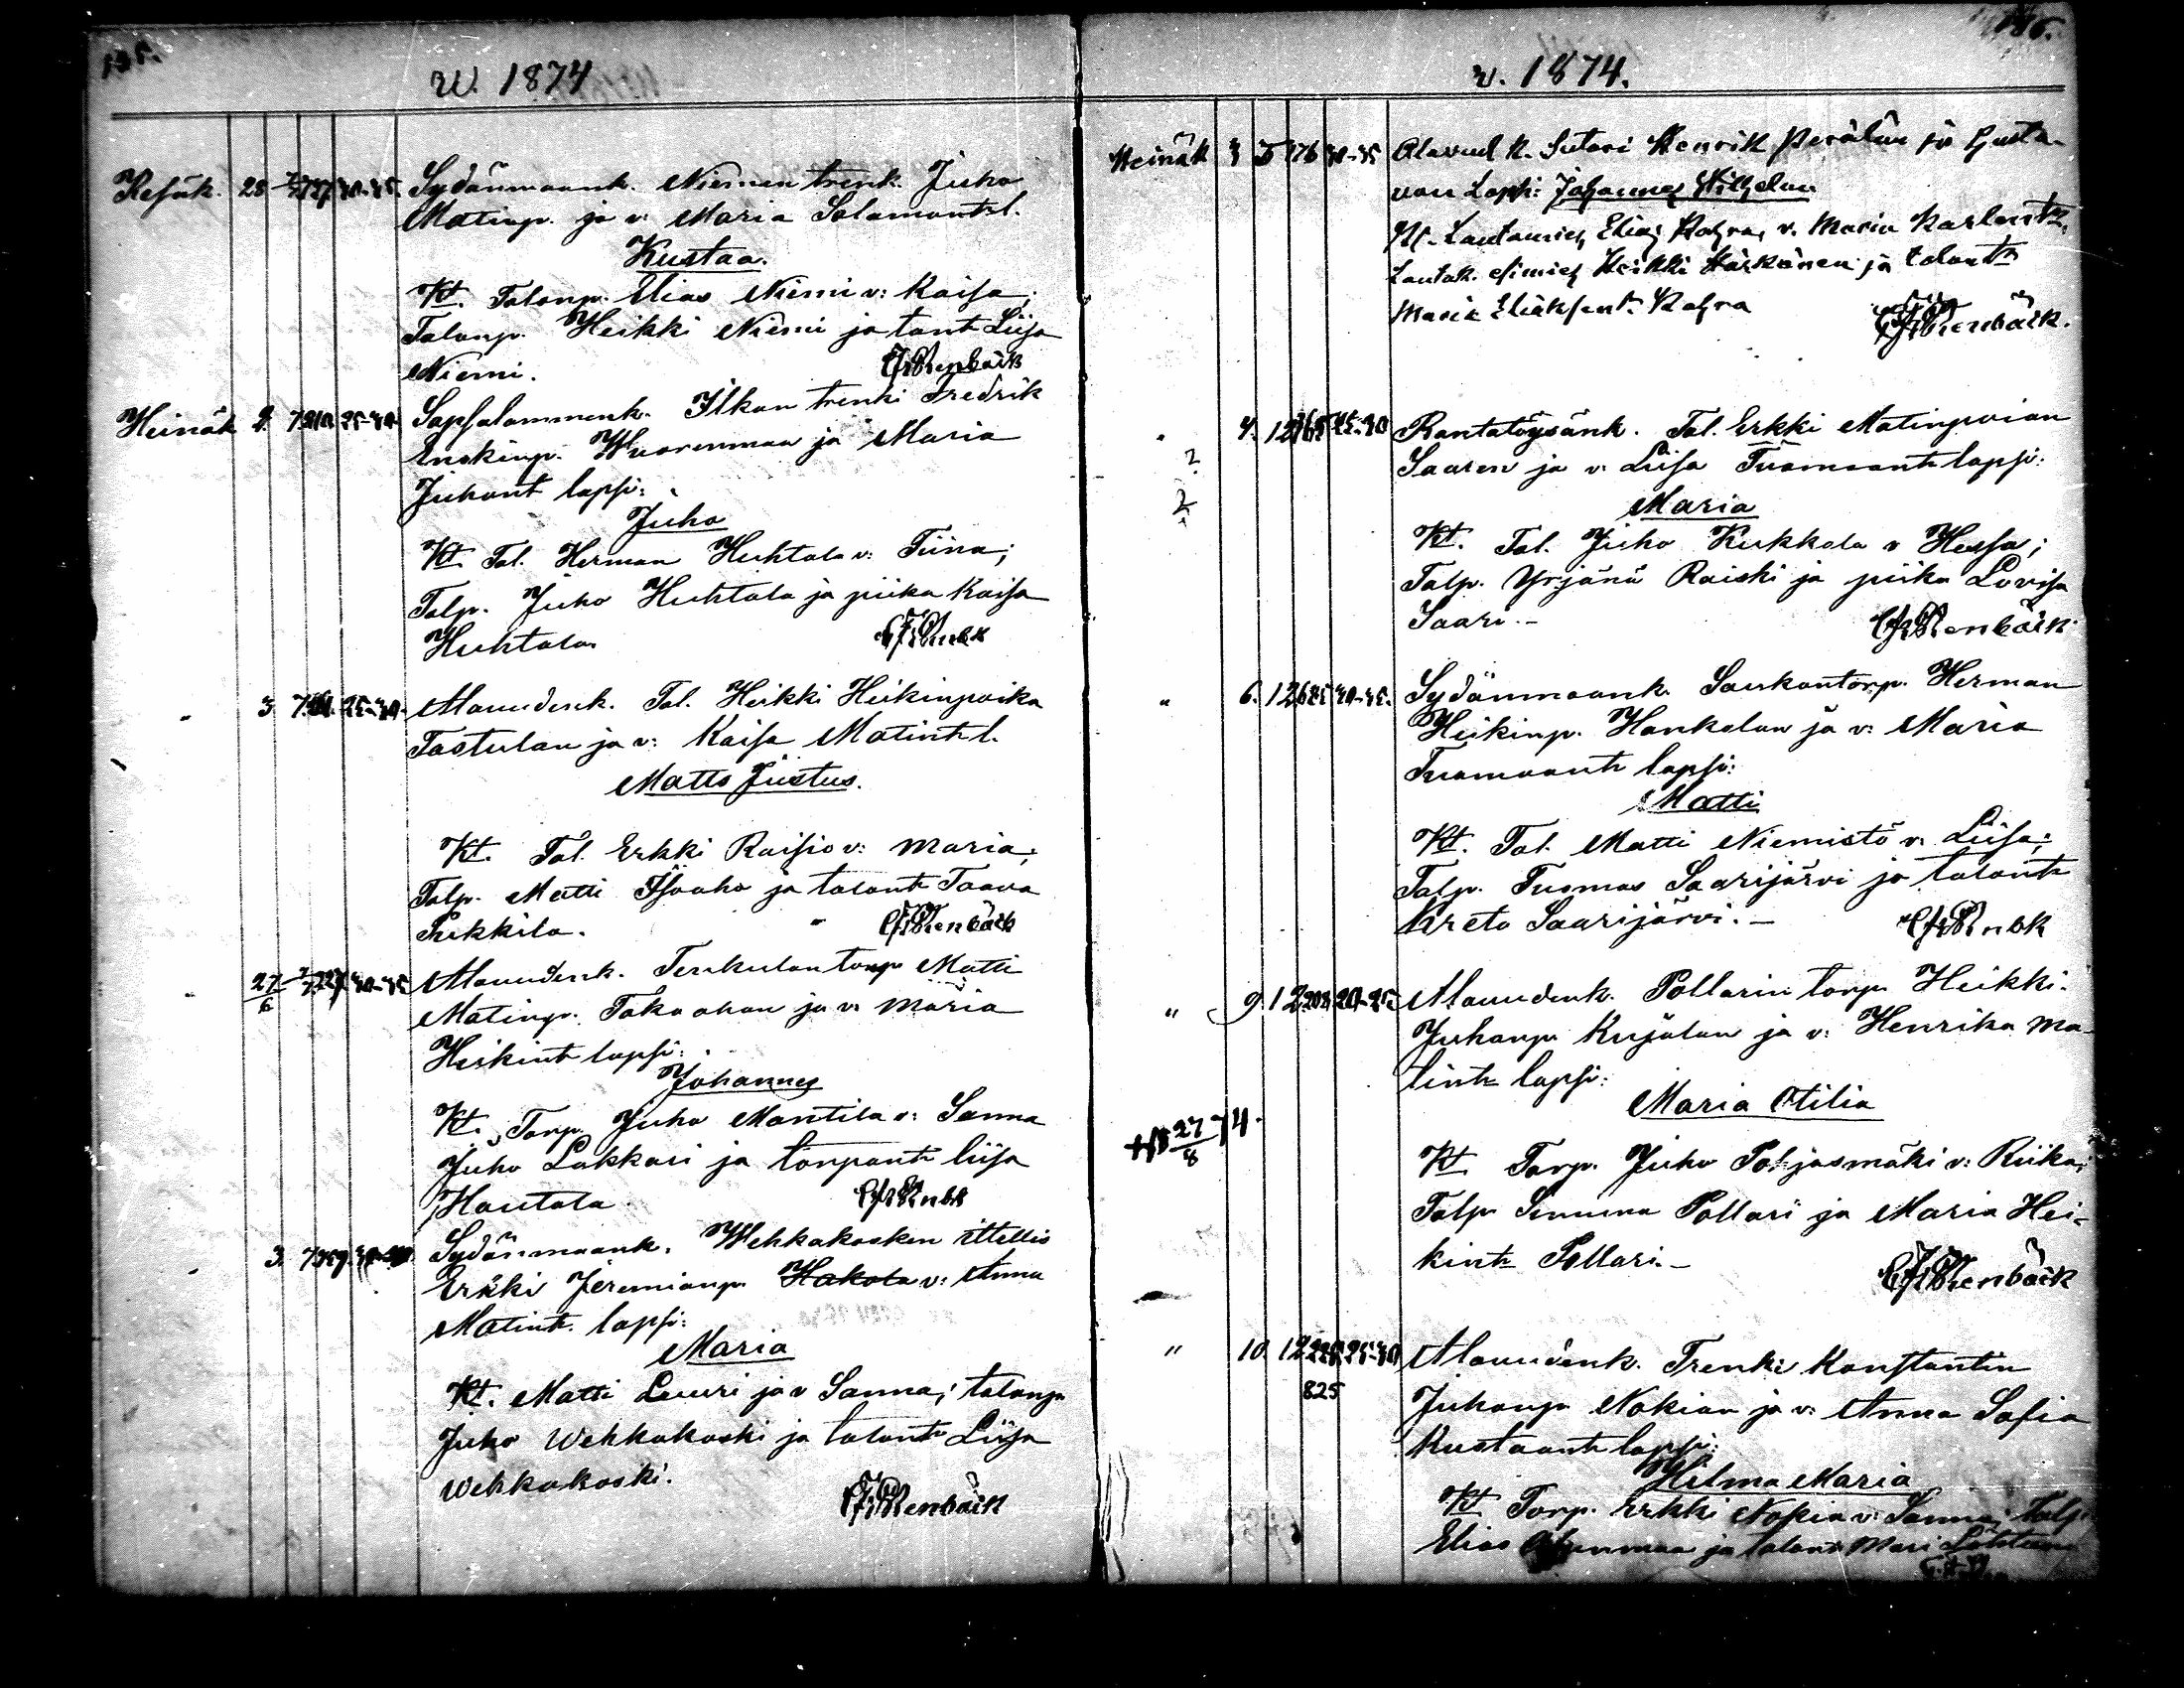 135.
W. 1874
Kesäk. 28 7/7 227 30-35. Sydänmaank. Niemen trenk. Juho
Matinp. ja v: Maria Salamontr l.
Kustaa.
Kt. Talonp. Elias Niemi v: Kaisa;
Talonp. Heikki Niemi ja tantr Liisa
Niemi. Renbäck
Heinäk 2. 7 210. 25-30. Sapsalammenk. Ilkan trenki Fredrik
Enokinp. Wuorenmaa ja Maria
Juhont lapsi:
Juho
Kt. Tal. Herman Huhtala v: Tiina;
Talp. Juho Huhtala ja piika Kaisa
Huhtala
" 3 7. 25-30. Alavudenk. Tal. Heikki Heikinpoika
Tastulan ja v: Kaisa Matintr l.
Matts Justus.
Kt. Tal. Erkki Raisio v: Maria;
Talp. Matti Isoaho ja talontr Taava
Sukkila. Renbäck
" 27/6 7/7 227 30-35 Alavudenk. torp Matti
Matinp. Takaahon ja v: Maria
Heikintr lapsi:
Johannes
Kt. Torp. Juho Mantila v: Sanna
Juho Lakkari ja torpantr liisa
Hautala
" 3. 7 Sydänmaank. Wehkakosken ittellis
Erkki Jeremianp. Hakola v: Anna
Matintr. lapsi:
Maria
Kt. Matti Luuri ja v Sanna; talonp
Juho Wehkakoski ja talontr Liisa
Wehkakoski.
Renbäck
136.
v. 1874.
Heinäk 3 5 176 30-35 Alavud k. Sutari Henrik Perälän ja Gusta-
van Lapsi: Johannes Wilhelm
Kt. Lautamies Elias Rahra, v. Maria Karlontr,
Lautak. esimies Heikki Härkönen ja talontr
Maria Eliaksentr. Rahra
Renbäck.
" 4. 12 165 25-30 Rantatöysänk. Tal. Erkki Matinpoian
Saaren ja v: Liisa Tuomaantr lapsi:
Maria
Kt. Tal. Juho Kukkola v Hessa;
Talp. Yrjänä Raiski ja piika Lovisa
Saari.- Renbäck
2
2
" 6. 12 30-35. Sydänmaank. Saukontorp. Herman
Heikinp. Hankolan ja v: Maria
Tuomaantr lapsi:
Matti
Kt. Tal. Matti Niemistö v: Liisa;
Talp. Tuomas Saarijärvi ja talontr
Kreta Saarijärvi.-
" 9. 12 203 20-25. Alavudenk. Pollarin torp. Heikki
Juhanp Kujalan ja v: Henrika Ma-
tintr lapsi:
Maria Otilia
27/8 74.
Kt. Torp. Juho Pohjasmäki v: Riika;
Talp Pollari ja Maria Hei-
kintr Pollari.-
Renbäck
" 10. 12 228 25-30 Alavudenk. Trenki Konstantin
825
Juhanp Nokian ja v: Anna Sofia
Kustaantr lapsi:
Hilma Maria
Kt Torp. Erkki Nokia v: Sanna; talp.
Elias ja talontr Mari